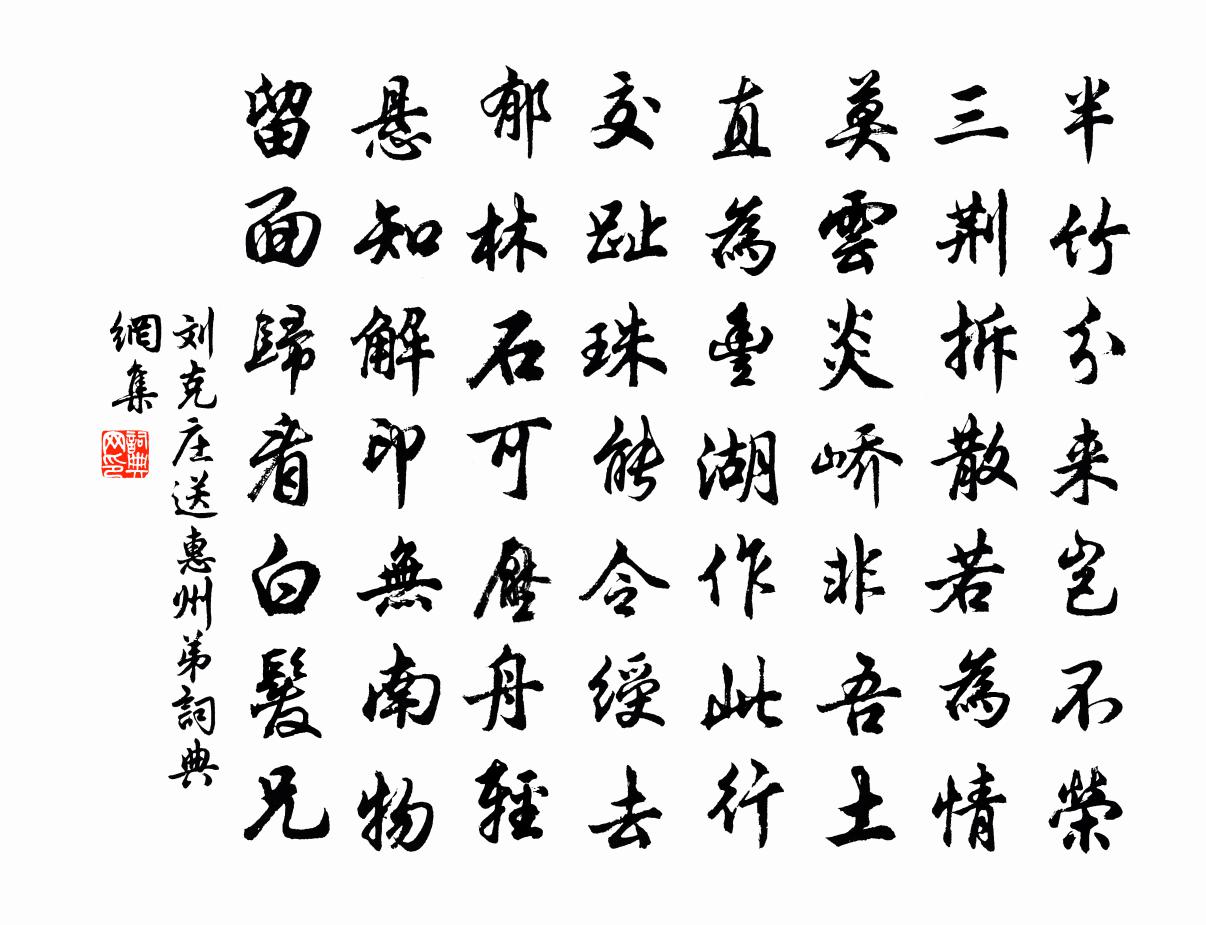 半竹分来岂不榮
三荆拆散若為情
莫雲炎峤非吾土
直為豊湖作此行
交趾珠能令綬去
郁林石可壓舟輕
悬知解印無南物
留面歸看白髮兄
刘克庄送惠州弟詞典
網集
詞典
网印